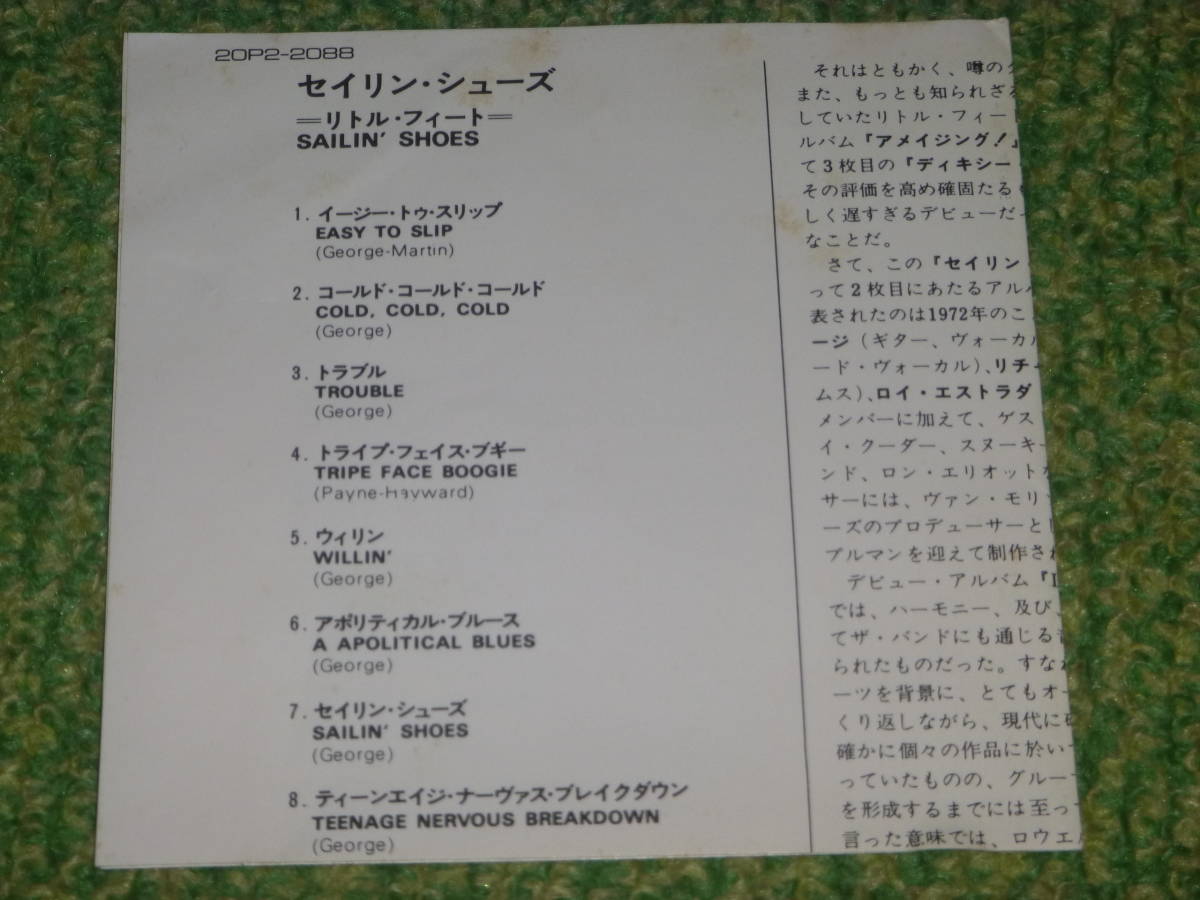 20P2-2088
セイリン・シューズ
=リトル・フィート=
SAILIN' SHOES
1. イージー・トゥ・スリップ
EASY TO SLIP
(George-Martin)
2. コールド・コールド・コールド
COLD, COLD, COLD
(George)
3. トラブル
TROUBLE
(George)
4. トライプ・フェイス・ブギー
TRIPE FACE BOOGIE
(Payne-Hayward)
5. ウィリン
WILLIN'
(George)
6. アポリティカル・ブルース
A APOLITICAL BLUES
(George)
7. セイリン・シューズ
SAILIN' SHOES
(George)
8. ティーンエイジ・ナーヴァス・ブレイクダウン
TEENAGE NERVOUS BREAKDOWN
(George)
それはともかく、噂の
また、もっとも知られざ
していたリトル・フィー
ルバム『アメイジング!』
て3枚目の『ディキシー
その評価を高め確固たる
しく遅すぎるデビューだ
なことだ。
さて、この『セイリン
って2枚目にあたるアル
表されたのは1972年のこ
ージ(ギター、ヴォーカ
ード・ヴォーカル)、リチ
ムス)、ロイ・エストラダ
メンバーに加えて、ゲス
イ・クーダー、スヌーキ
ンド、ロン・エリオット
サーには、ヴァン・モリ
ーズのプロデューサーと
ブルマンを迎えて制作さ
デビュー・アルバム『
では、ハーモニー、及び、
てザ・バンドにも通じる
られたものだった。すな
ーツを背景に、とてもオー
くり返しながら、現代に
確かに個々の作品に於い
っていたものの、グルー
を形成するまでには至っ
言った意味では、ロウエ